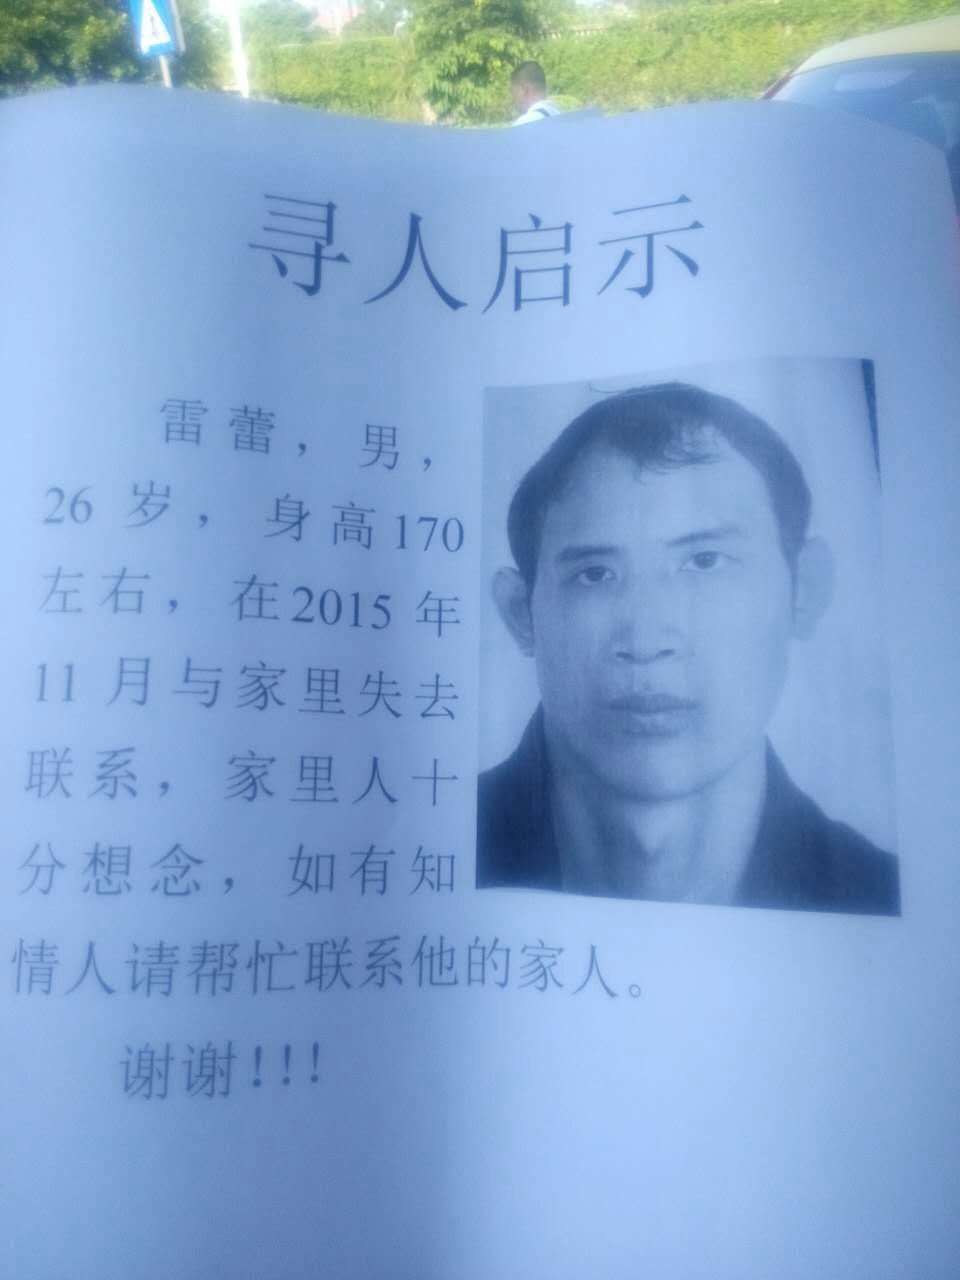 寻人启示
雷蕾，男，
26岁，身高170
左右，在2015年
11月与家里失去
联系，家里人十
分想念，如有知
情人请帮忙联系他的家人。
谢谢!!!